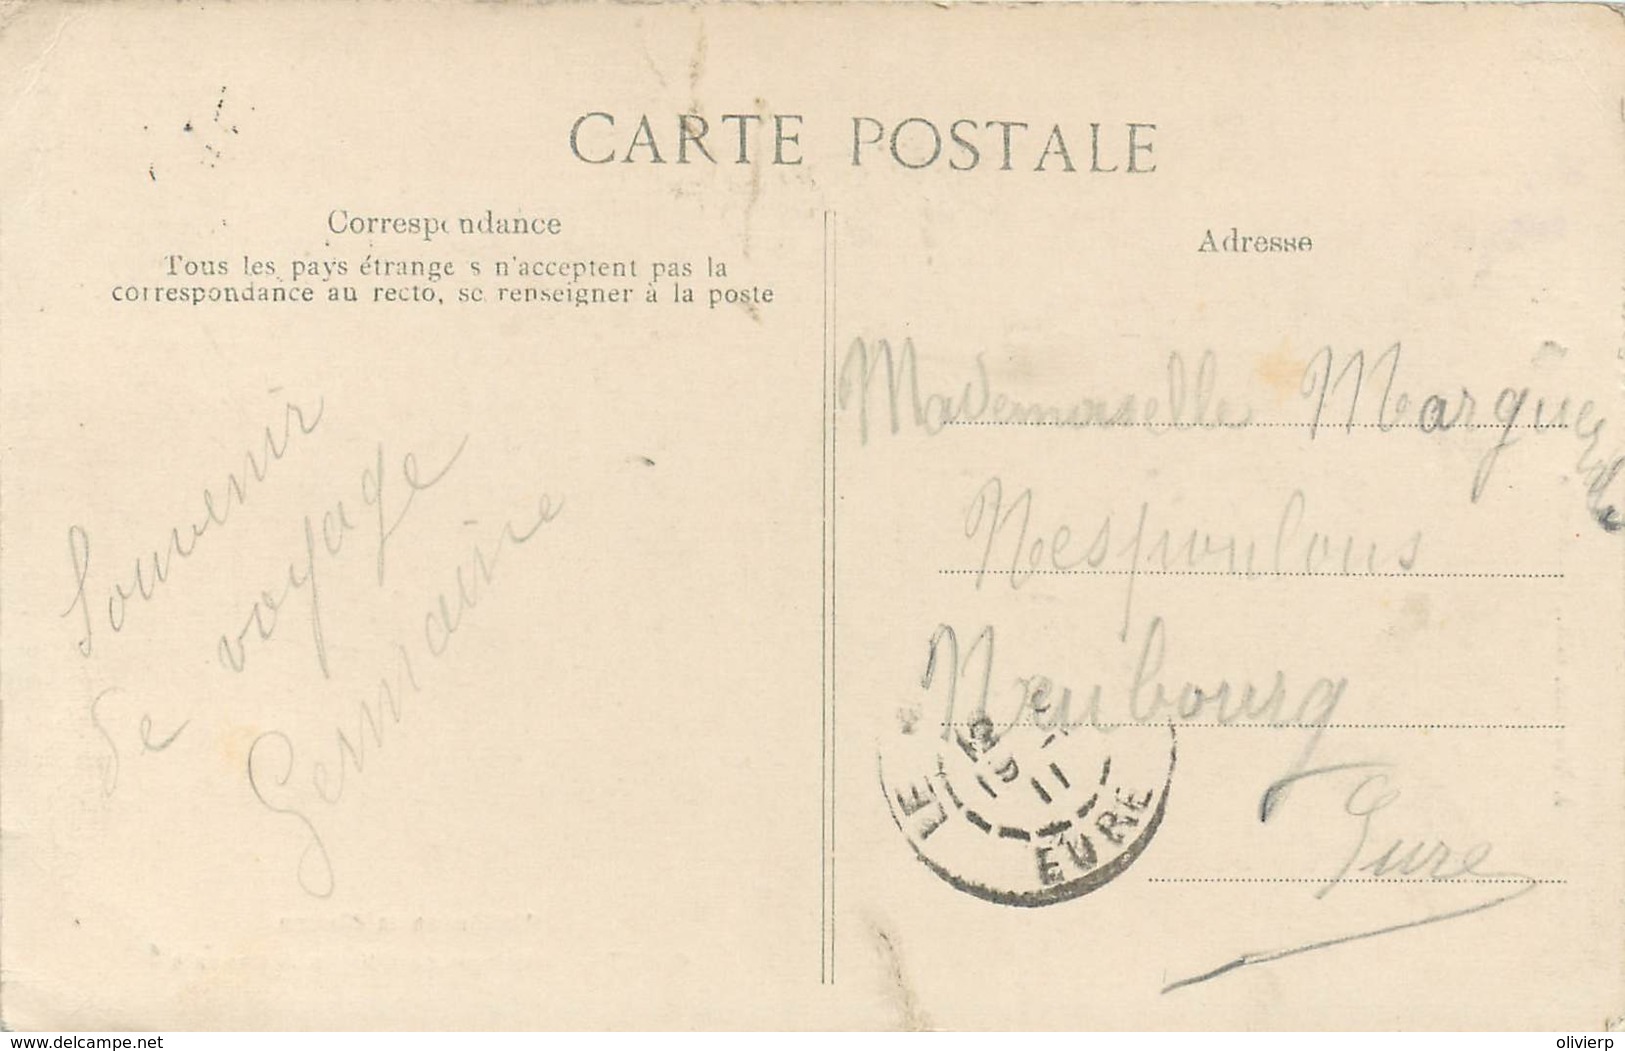 CARTE POSTALE
Correspondance
Tous les pays étrangers n'acceptent pas la
correspondance au recto, se renseigner à la poste
Souvenir
de voyage
Germaine
Adresse
Mademoiselle Marguerite
Nespoulous
Neubourg
Eure
LE
11
EURE
www.delcampe.net
olivierp